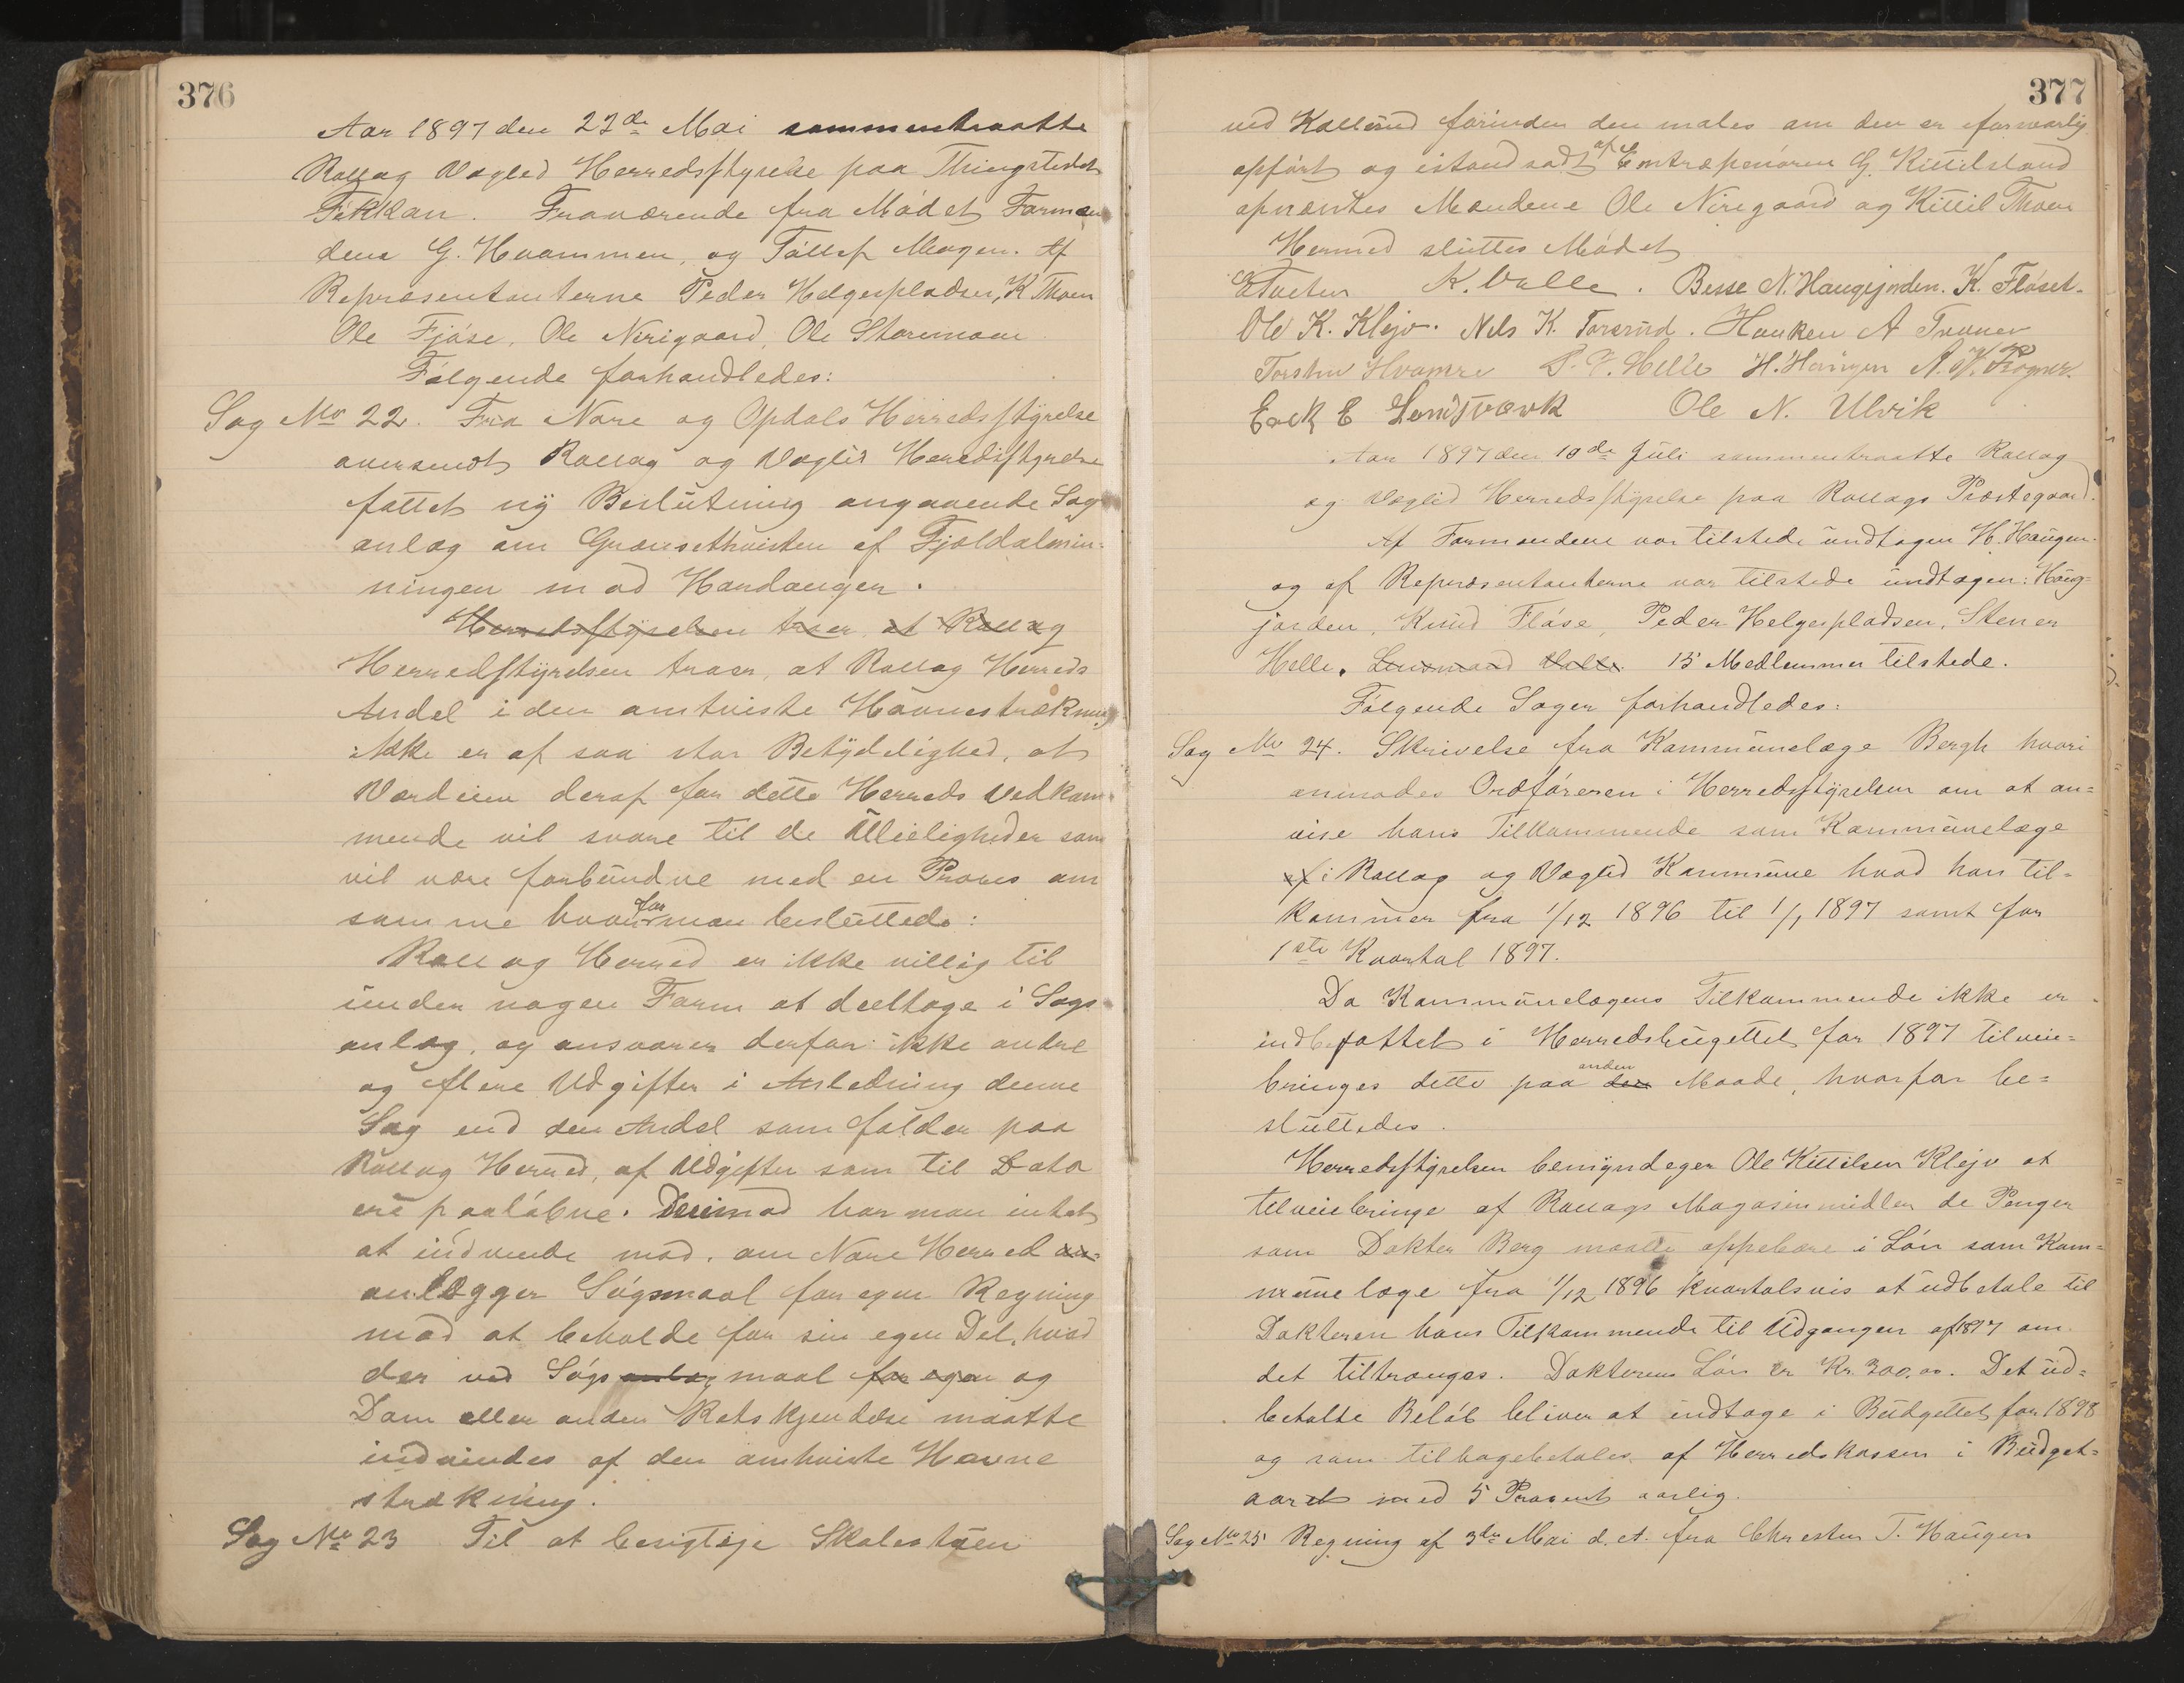 376
Aar 1897 den 22de Mai sammentraatte
Rollag Vægled Herredsstyrelse paa Thingstedet
Fekkan. Fraværende fra Mødet Formæn
dene G. Hvammen, og Tøllef Mogen. Af
Repræsentanterne Peder Helgespladsen, K Thoen
Ole Fjøse, Ole Nerigaard, Ole Storemoen
Følgende forhandledes:
Sag No 22. Fra Nore og Opdals Herredsstyrelse
oversendt Rollag og Væglis Herredsstyrelse
fattet ny Beslutning angaaende Sag
anlæg om Grænsethvisten af Fjeldalmin-
ningen mod Hardanger.
Herredsstyrelsen troer at Rollag
Herredsstyrelsen troer, at Rollag Herreds
Andel i den omtviste Havnestrækning
ikke er af saa stor Betydelighed, at
Værdien deraf for dette Herreds Vedkom-
mende vil svare til de Ulleiligheder som
vil være forbundne med en Proces om
samme hvorfor man besluttede:
Rollag Herred er ikke villig til
under nogen Form at deeltage i Sags
anlæg, og ansvarer derfor ikke andre
og flere Udgifter i Anledning denne
Sag end den Andel som falder paa
Rollag Herred, af Udgifter som til Dato
ere paaløbne. Derimod har man intet
at indvende mod, om Nore Herred an-
anlægger Søgsmaal for egen Regning
mod at beholde for sin egen Del, hvad
der ved Søgsanlæg maal for egen og
Dom eller anden Retskjendelse maatte
indvindes af den omtviste Havne
strækning.
Sag No 23 Til at besigtige Skolestuen
377
ved Kollerud forinden den males om den er forsvarlig
opført og istandsadt af Entreprenøren G. Kittilsland
opnævntes Mændene Ole Niregaard og Kittil Thoen
Hermed sluttes Mødet
E Tveten K. Valle. Besse N. Haugejorden. K. Fløset.
Ole K. Klejv. Nels K. Torsrud. Haaken A Traaner
Torsten Hvamre P. P. Helle H. Haugen A. K. Kogner.
Erek E Landsværk Ole N. Ulvik
Aar 1897 den 10de Juli sammentraatte Rollag
og Væglid Herredsstyrelse paa Rollags Præstegaard.
Af Formændene var tilstede undtagen H. Haugen.
og af Repræsentanterne var tilstede undtagen: Haug-
jorden, Knud Fløse, Peder Helgespladsen, Stener
Helle. Lensmand Valle 15 Medlemmer tilstede.
Følgende Sager forhandledes:
Sag No 24. Skrivelse fra Kommunelæge Bergh hvori
anmodes Ordføreren i Herredsstyrelsen om at an-
vise hans Tilkommende som Kommunelæge
af i Rollag og Væglid Kommune hvad han til-
kommer fra 1/12 1896 til 1/1 1897 samt for
1ste Kvartal 1897.
Da Kommunelægens Tilkommende ikke er
indbefattet i Herredsbugettet for 1897 tilveie-
bringes dette paa den anden Maade, hvorfor be-
sluttedes.
Herredsstyrelsen bemyndeger Ole Kittilsen Klejv at
tilveiebringe af Rollags Magasinmidler de Penger
som Dokter Berg maatte oppebære i Løn som Kom-
munelæge fra 1/12 1896 kvartalsvis at udbetale til
Dokteren hans Tilkommende til Udgangen af 1897 om
det tiltrænges. Dokterens Løn er Kr. 300,00. Det ud-
betalte Beløb bliver at indtage i Budgettet for 1898
og som tilbagebetales af Herredskassen i Budget-
aaret med 5 Procent aarlig.
Sag No 25 Regning af 3de Mai d. A. fra Chresten T. Haugen